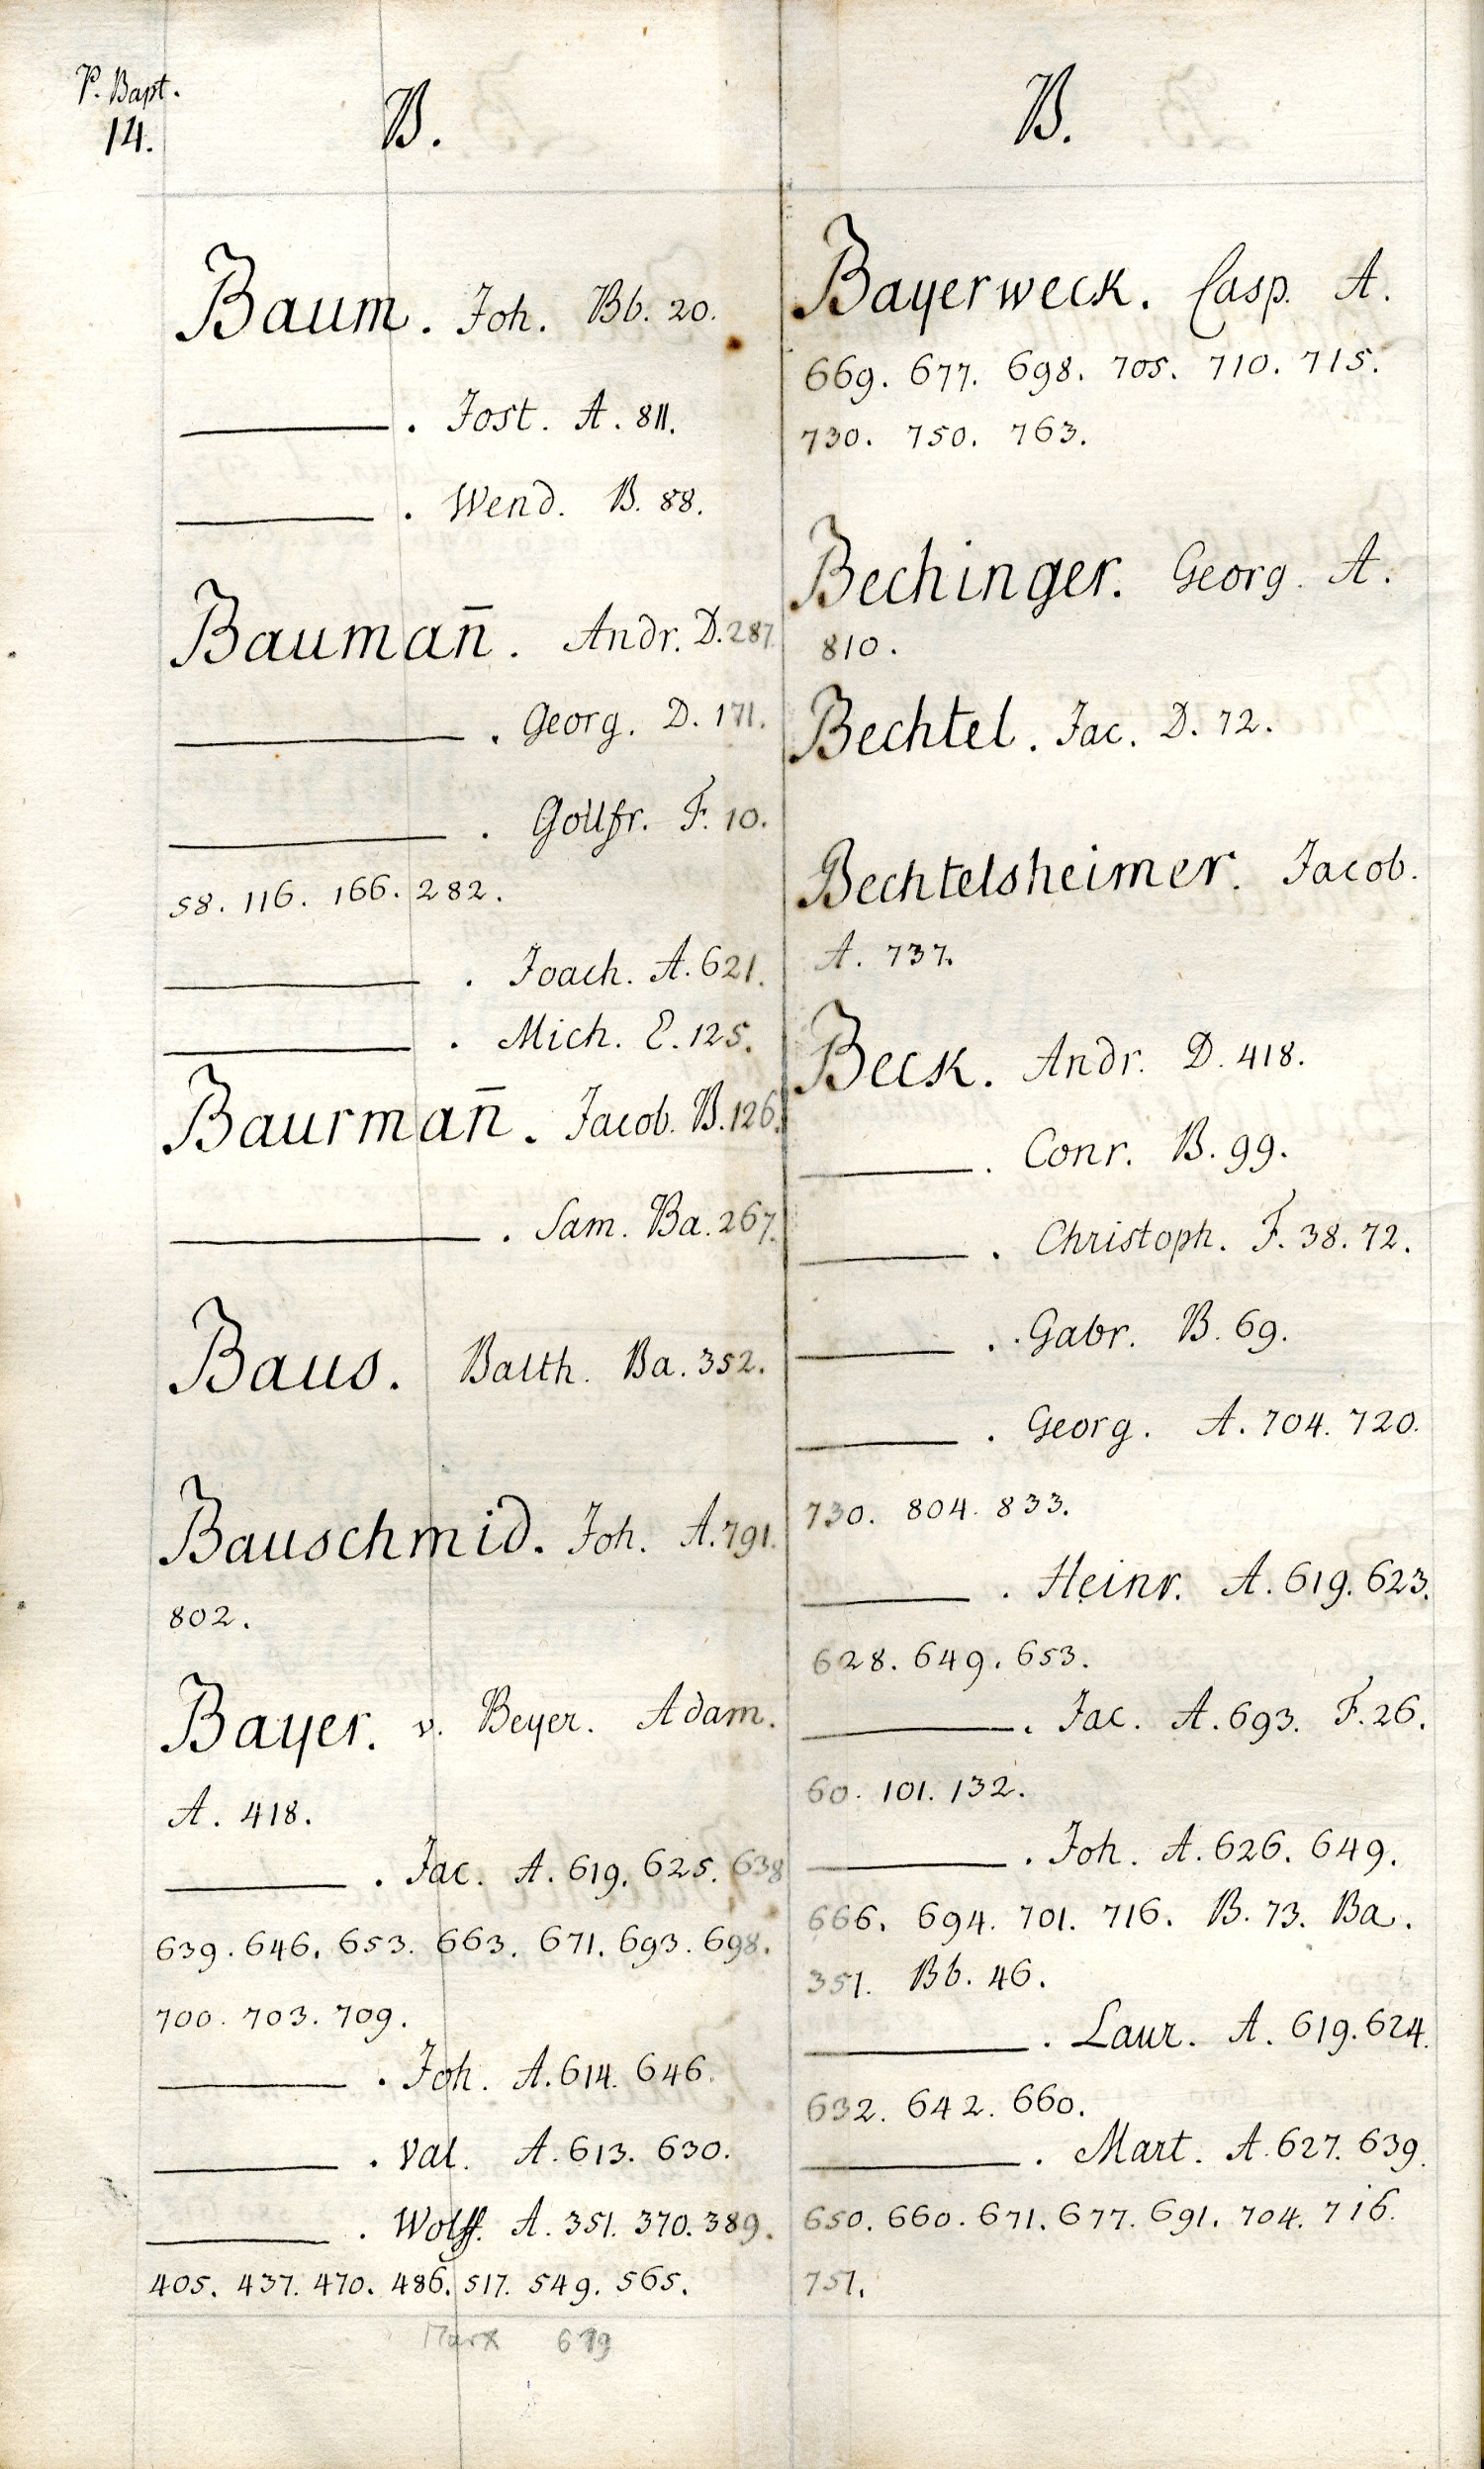 P. Bapt.
14.
B.
Baum. Joh. Bb. 20.
———. Jost. A. 811.
———. Wend. B. 88.
Baumañ. Andr. D. 287.
———. Georg. D. 171.
———. Gottfr. F. 10.
58. 116. 166. 282.
———. Joach. A. 621.
———. Mich. E. 125.
Baurmañ. Jacob. B. 126.
———. Sam. Ba. 267.
Baus. Balth. Ba. 352.
Bauschmid. Joh. A. 791.
802.
Bayer. v. Beyer. Adam.
A. 418.
———. Jac. A. 619. 625. 638
639. 646. 653. 663. 671. 693. 698.
700. 703. 709.
———. Joh. A. 614. 646.
———. Val. A. 613. 630.
———. Wolff. A. 351. 370. 389.
405. 437. 470. 486. 517. 549. 565.
Marx
B.
Bayerweck. Casp. A.
669. 677. 698. 705. 710. 715.
730. 750. 763.
Bechinger. Georg. A.
810.
Bechtel. Jac. D. 72.
Bechtelsheimer. Jacob.
A. 737.
Beck. Andr. D. 418.
———. Conr. B. 99.
———. Christoph. F. 38. 72.
———. Gabr. B. 69.
———. Georg. A. 704. 720.
730. 804. 833.
———. Heinr. A. 619. 623.
628. 649. 653.
———. Jac. A. 693. F. 26.
60. 101. 132.
———. Joh. A. 626. 649.
666. 694. 701. 716. B. 73. Ba.
351. Bb. 46.
———. Laur. A. 619. 624.
632. 642. 660.
———. Mart. A. 627. 639.
650. 660. 671. 677. 691. 704. 716.
751.